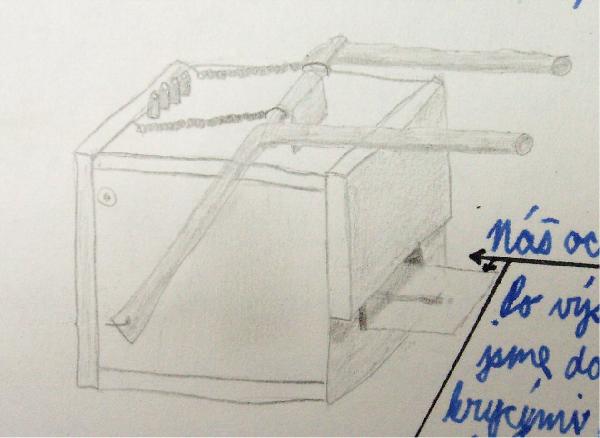 Náš oc
Po výs
jsme do
krycími